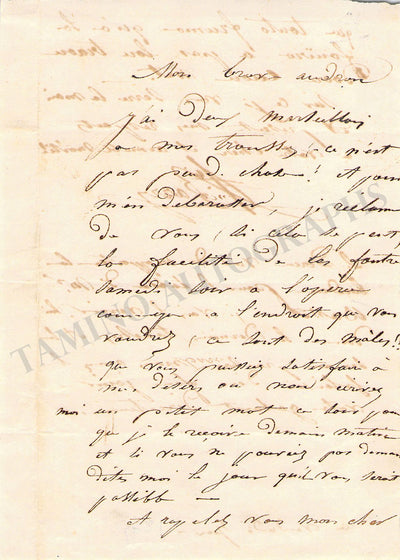 Mon brave audran
J'ai deux marseillais
a mes trousses, ce n'est
pas peu de chose! et pour
m'en debarasser, je reclame
de vous, si cela se peut,
la facilité de les foutre
samedi soir à l'opera
comique a l'endroit que vous
voudrez, ce sont des mâles!!
que vous puissiez satisfaire à
mes désirs ou non ecrivez
moi un petit mot ce soir pour
que je le reçoive demain matin
et si vous ne pouviez pas demain
dites moi le jour qu'il vous serait
possible —
et rappelez vous mon cher
TAMINO AUTOGRAPHS